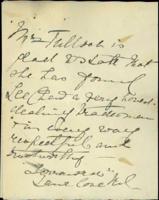 Mrs Tulloch is
glad to state that
she has found
Lee Chad a very honest
dealing tradesman
& in every way
respectful and
trustworthy